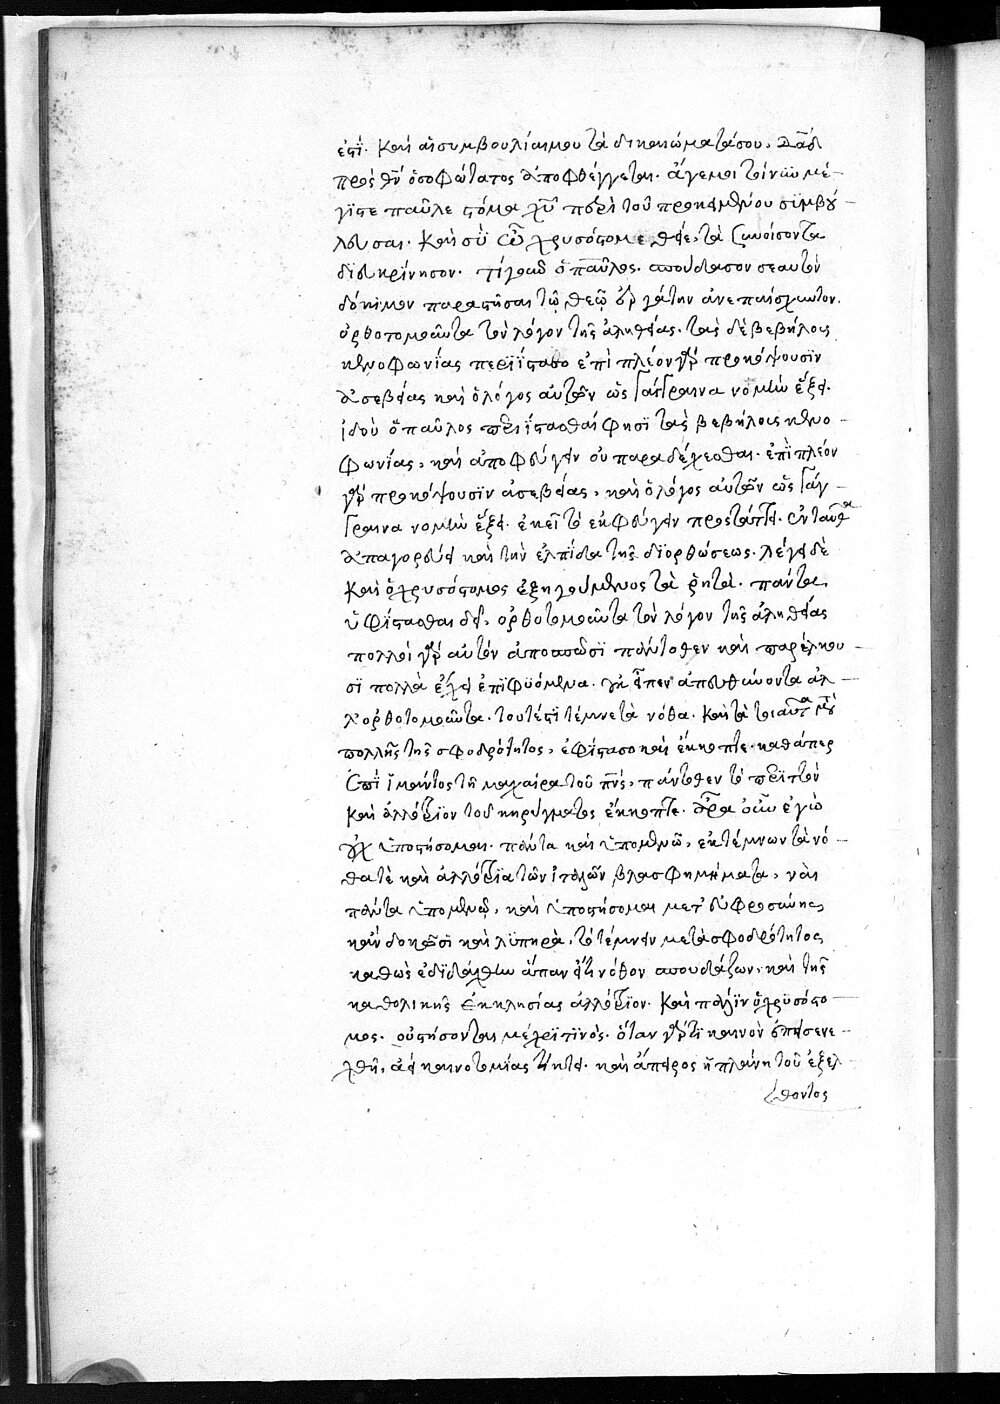 ἐστϊ. Καὶ αἱ συμβουλίαι μου τὰ δικαιώματά σου. Δᾱδ
πρὸς θν̄ ὁ σοφώτατος ἀποφθέγγεται. ἄγε μοι τοίνυν μέ-
γϊστε παῦλε στόμα χῡ περὶ τοῦ προκειμένου συμβού-
λευσαι. Καὶ σὺ ὦ χρυσόστομε θεῖε, τὰ συνοίσοντα
διευκρίνησον. τί γοῦν ὁ παῦλος. σπούδασον σεαυτὸν
δόκιμον παραστῆσαι τῷ θεῷ ἐργάτην ἀνεπαίσχυντον.
ὀρθοτομοῦντα τὸν λόγον τῆς ἀληθείας. τὰς δὲ βεβήλους
κενοφωνίας περιΐστασο ἐπὶ πλέον γὰρ προκόψουσϊν
ἀσεβείας καὶ ὁ λόγος αὐτῶν ὡς γάγγραινα νομὴν ἕξει.
ἰδοὺ ὁ παῦλος περιΐστασθαί φησϊ τὰς βεβήλους κενο-
φωνίας, καὶ ἀποφεύγειν οὐ παραδέχεσθαι. ἐπϊ πλέον
γὰρ προκόψουσϊν ἀσεβείας, καὶ ὁ λόγος αὐτῶν ὡς γάγ-
γραινα νομὴν ἕξει. ἐκεῖ τὸ ἐκφεύγειν προστάττει. ἐνταῦθα
ἀπαγορεύει καὶ τὴν ἐλπίδα τῆς διορθώσεως. λέγει δὲ
καὶ ὁ χρυσόστομος ἐξηγούμενος τὰ ῥητά. πάντα
ὑφίστασθαι δεῖ, ὀρθοτομοῦντα τὸν λόγον τῆς ἀληθείας
πολλοὶ γὰρ αὐτὸν ἀποσπῶσϊ πάντοθεν καὶ παρέλκου-
σϊ πολλὰ ἔχει ἐπϊφυόμενα. οὐκ εἶπεν ἀπευθύνοντα ἀλ-
λ' ὀρθοτομοῦντα. τουτέστι τέμνε τὰ νόθα. Καὶ τὰ τοιαῦτα μετὰ
πολλῆς τῆς σφοδρότητος, ἐφίστασο καὶ ἔκκοπτε. καθάπερ
ἐπϊ ἱμάντος τῆ μαχαίρα τοῦ πν̄ς, πάντοθεν τὸ περιττὸν
καὶ ἀλλότριον τοῦ κηρύγματος ἔκκοπτε. ἆρα οὖν ἐγὼ
οὐχ ὑποστήσομαι. πάντα καὶ ὑπομενῶ, ἐκτέμνων τὰ νό-
θά τε καὶ ἀλλότρια τῶν ἰταλῶν βλασφημήματα, ναὶ
πάντα ὑπομενῶ, καὶ ὑποστήσομαι μετ' εὐφροσύνης,
κἂν δοκῶσϊ καὶ λϋπηρὰ, τὸ τέμνειν μετὰ σφοδρότητος
καθὼς ἐδιδάχθην ἅπαν ὅτϊ νόθον σπουδάζων, καὶ τῆς
καθολικῆς ἐκκλησίας ἀλλότριον. Καὶ πάλϊν ὁ χρϋσόστο-
μος. οὐ στήσονται μέχρϊ τινὸς. ὅταν γάρ τϊ καινὸν ἐπεισενε-
χθῆ, ἀεὶ καινοτομίας τίκτει. καὶ ἄπειρος ἡ πλάνη τοῦ ἐξελ-
θόντος